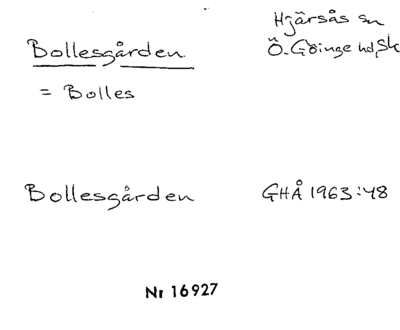 Bollesgården
Hjärsås sn
Ö. Göinge hd, Sk
= Bolles
Bollesgården
GHÅ 1963:48
Nr 16927